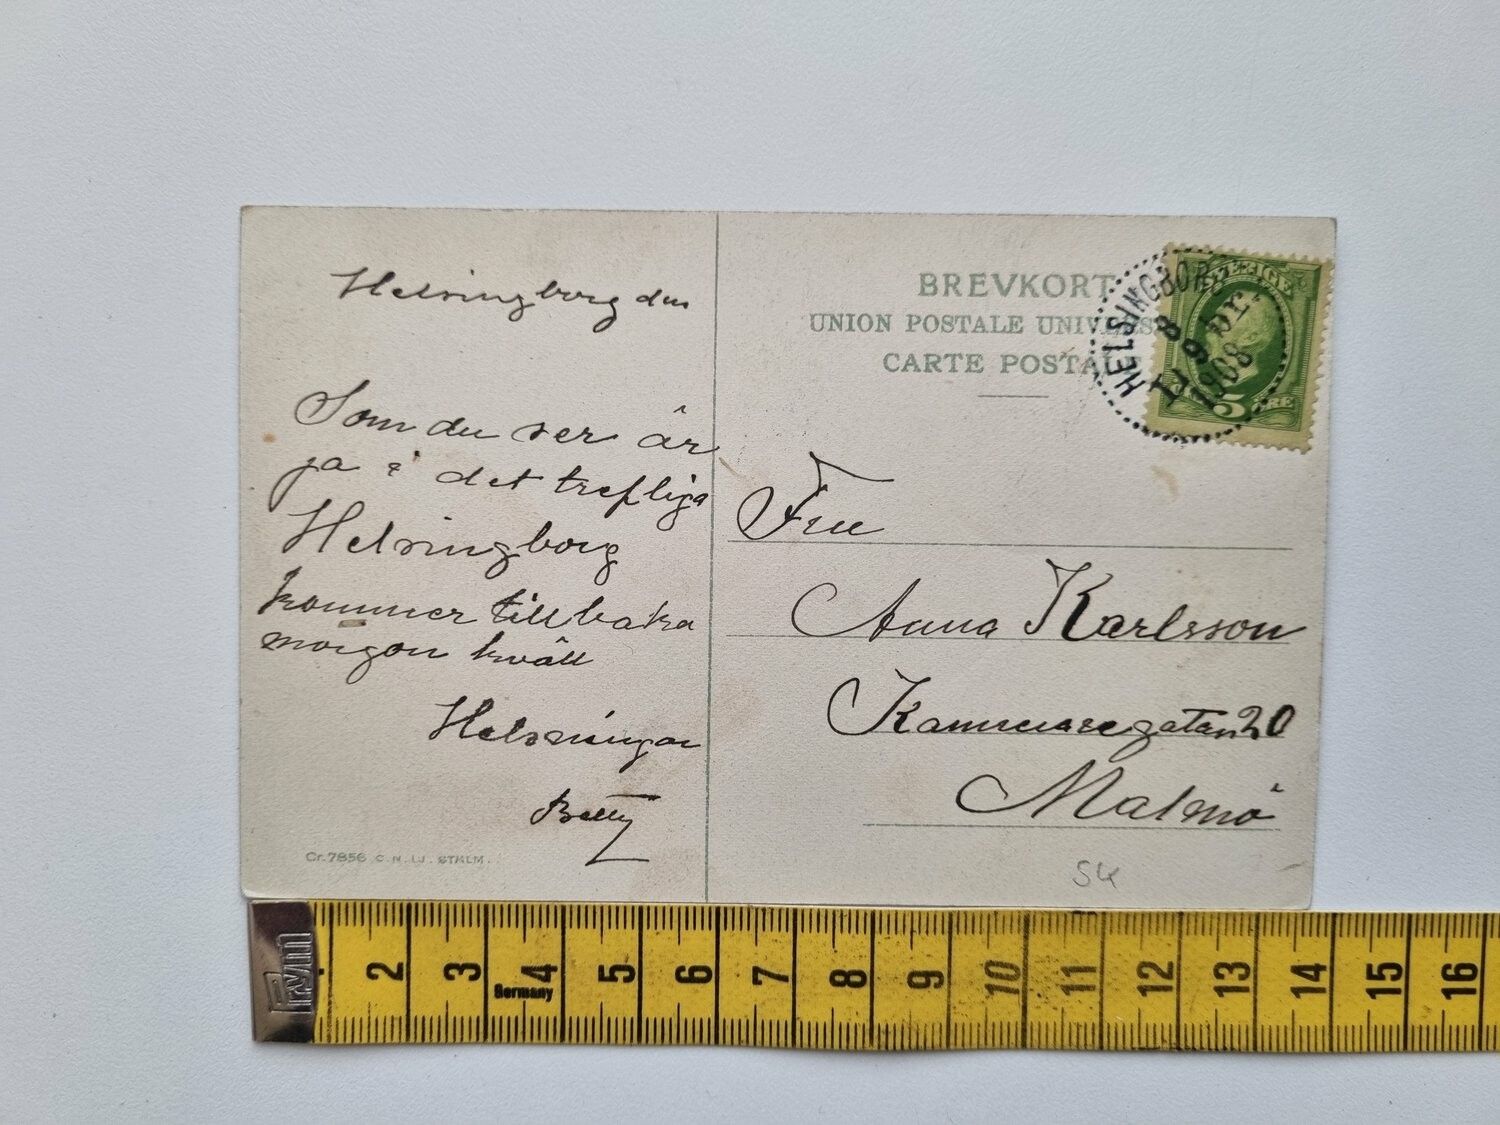 Helsingborg den
Som du ser är
ja i det trefliga
Helsingborg
kommer tillbaka
morgon kväll
Helsningar
Betty
Cr. 7856 C. N. LJ. STHLM.
BREVKORT
UNION POSTALE UNIVERS
CARTE POSTALE
HELSINGBORG
8
11 9 br.
1908
SVERIGE
5 ÖRE
Fru
Anna Karlsson
Kammeraregatan 20
Malmö
Prym
2 3 4 5 6 7 8 9 10 11 12 13 14 15 16
Germany